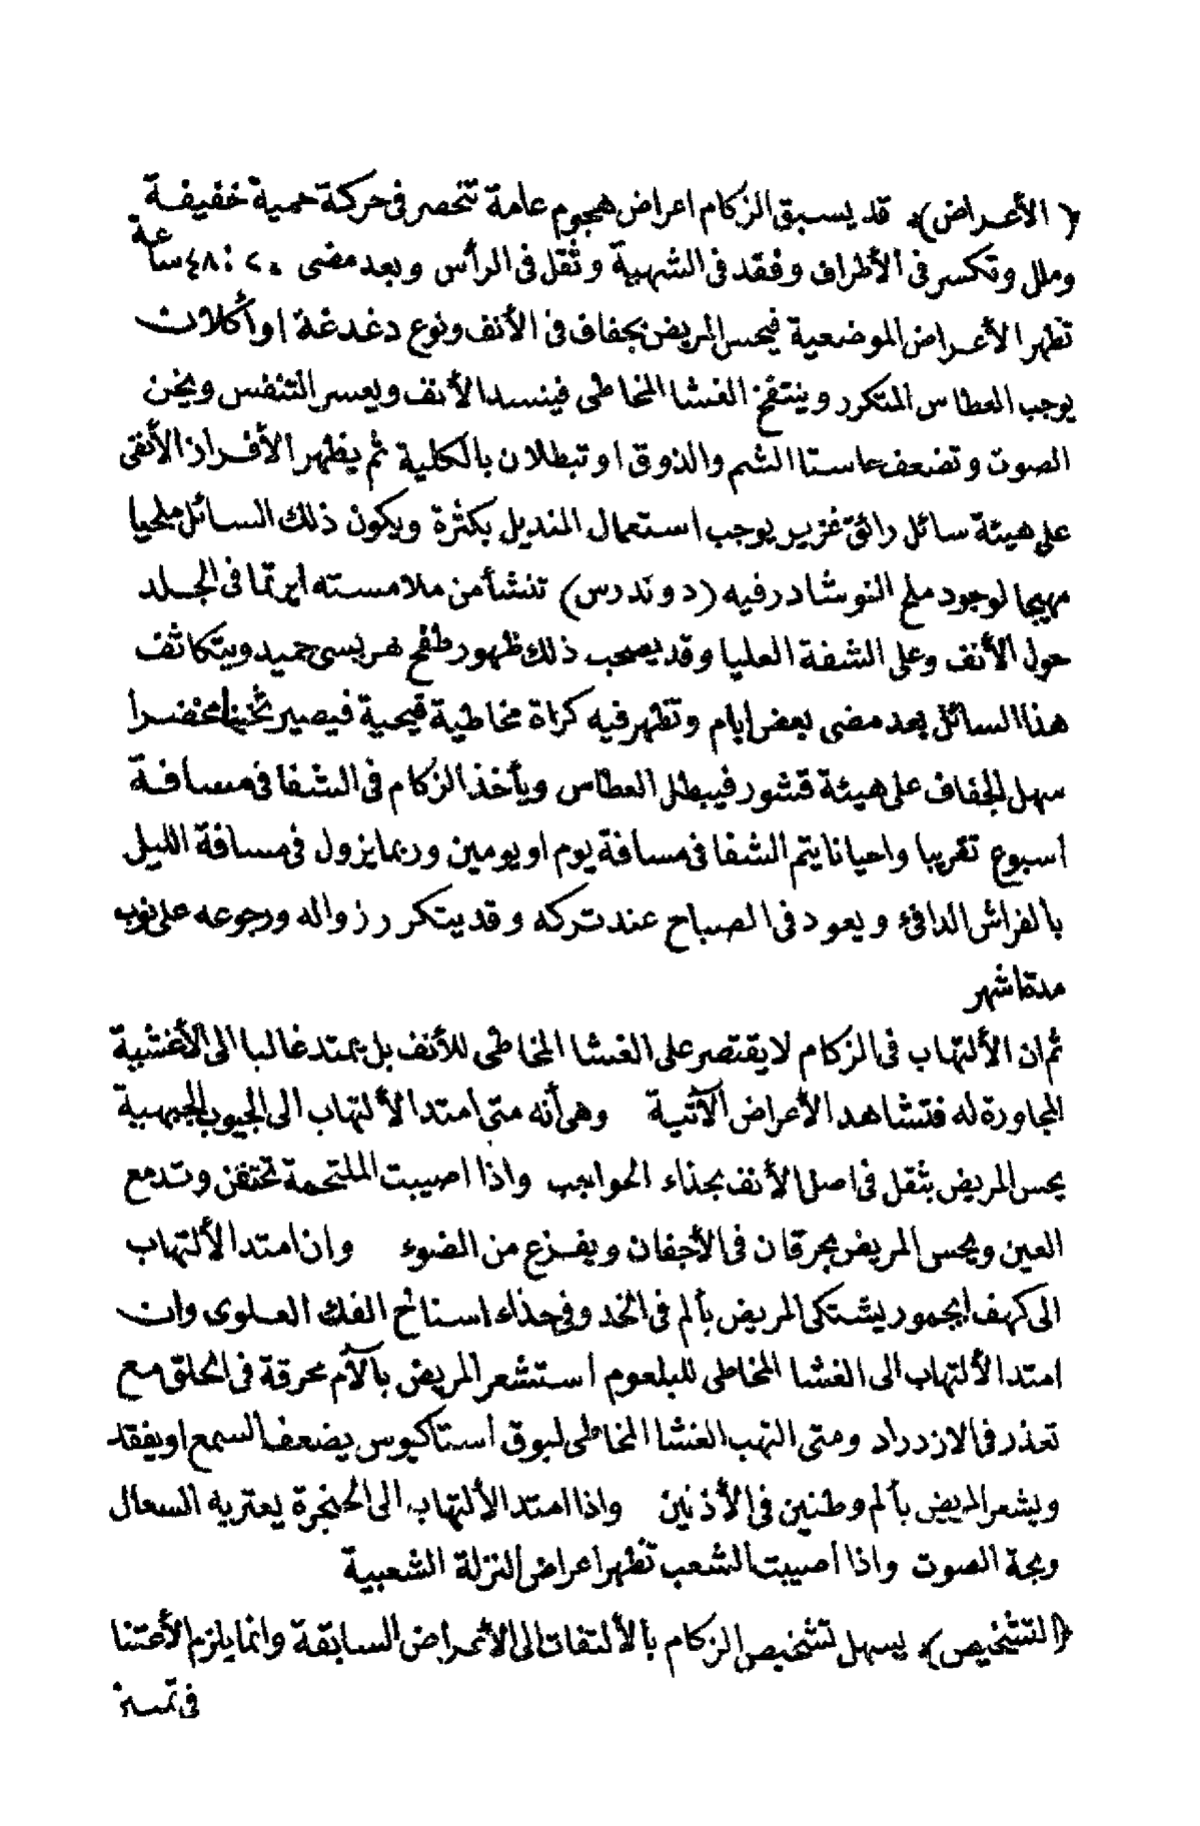 ﴿الأعراض﴾ قد يسبق الزكام اعراض هجوم عامة تنحصر فى حركة حمية خفيفة
وملل وتكسر فى الأطراف وفقد فى الشهية وثقل فى الرأس وبعد مضى ٢٠ : ٤٨ ساعة
تظهر الأعراض الموضعية فيحس المريض بجفاف فى الأنف ونوع دغدغة او أكلان
يوجب العطاس المتكرر وينتفخ الغشا المخاطى فينسد الأنف ويعسر التنفس ويخن
الصوت وتضعف حاستا الشم والذوق او تبطلان بالكلية ثم يظهر الأفراز الأنفى
على هيئة سائل رائق غزير يوجب استعمال المنديل بكثرة ويكون ذلك السائل ملحيا
مهيجا لوجود ملح النوشادر فيه (دوندرس) تنشأ من ملامسته ايرتما فى الجلد
حول الأنف وعلى الشفة العليا وقد يصحب ذلك ظهور طفح هربسى حميد ويتكاثف
هذا السائل بعد مضى بعض ايام وتظهر فيه كراة مخاطية قيحية فيصير ثخينا مخضرا
سهل الجفاف على هيئة قشور فيبطل العطاس ويأخذ الزكام فى الشفا فى مسافة
أسبوع تقريبا واحيانا يتم الشفا فى مسافة يوم او يومين وربما يزول فى مسافة الليل
بالفراش الدافئ ويعود فى الصباح عند تركه وقد يتكرر زواله ورجوعه على نوب
مدة اشهر
ثم ان الألتهاب فى الزكام لا يقتصر على الغشا المخاطى للأنف بل يمتد غالبا الى الأغشية
المجاورة له فتشاهد الأعراض الآتية وهى أنه متى أمتد الألتهاب الى الجيوب الجبهية
يحس المريض بثقل فى اصل الأنف بحذاء الحواجب واذا اصيبت الملتحمة تحتقن وتدمع
العين ويحس المريض بحرقان فى الأجفان ويفزع من الضوء وان امتد الألتهاب
الى كهف ايجمور يشتكى المريض بألم فى الخد وفى حذاء اسناخ الفك العلوى وان
امتد الألتهاب الى الغشا المخاطى للبلعوم أستشعر المريض بآلآم محرقة فى الحلق مع
تعذر فى الازدراد ومتى التهب الغشا المخاطى لبوق أستاكيوس يضعف السمع او يفقد
ويشعر المريض بألم وطنين فى الأذنين واذا امتد الألتهاب الى الحنجرة يعتريه السعال
وبحة الصوت واذا أصيبت الشعب تظهر أعراض النزلة الشعبية
﴿التشخيص﴾ يسهل تشخيص الزكام بالألتفات الى الأعراض السابقة وانما يلزم الأعتنا
فى تمييز